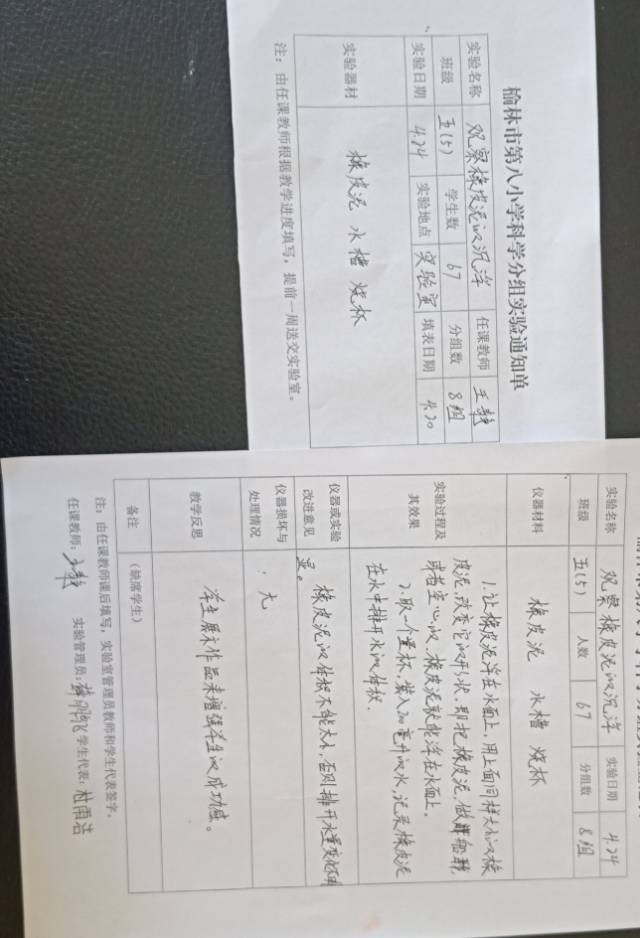 榆林市第八小学科学分组实验通知单
实验名称 观察橡皮泥的沉浮 任课教师
班级 五(5) 学生数 67 分组数 8组
实验日期 4.24 实验地点 实验室 填表日期 4.20
实验器材 橡皮泥 水槽 烧杯
注：由任课教师根据教学进度填写，提前一周送交实验室。
实验名称 观察橡皮泥的沉浮 实验日期 4.24
班级 五(5) 人数 67 分组数 8组
仪器材料 橡皮泥 水槽 烧杯
实验过程及其效果
1.让橡皮泥浮在水面上，用上面同样大小的橡
皮泥，改变它的形状，即把橡皮泥，做成船形，
或者空心的，橡皮泥就能浮在水面上。
2.取一个量杯，装入200毫升的水，记录橡皮泥
在水中排开水的体积。
仪器或实验改进意见
橡皮泥的体积不能太小，否则排开水量
仪器损坏与处理情况 无
教学反思 学生展示作品来增强学生的成功感。
备注 (缺席学生)
注：由任课教师课后填写，实验室管理员教师和学生代表签字。
任课教师： 实验管理员： 学生代表：杜雨洁